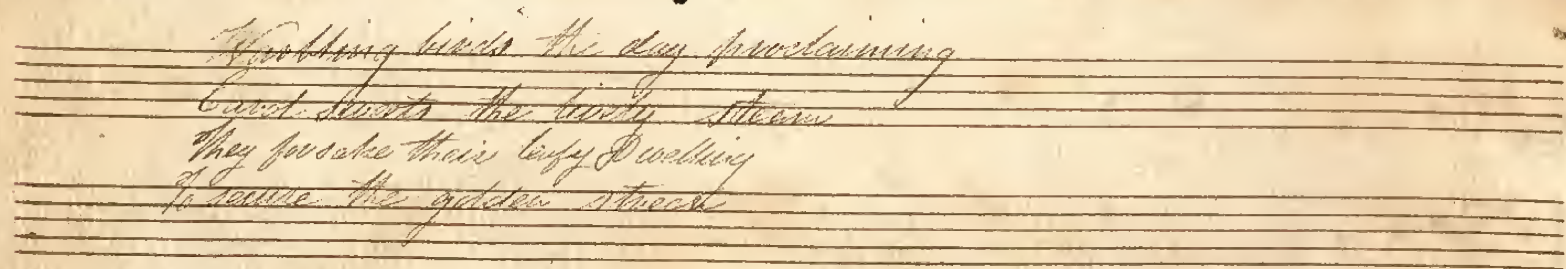 Warbling birds the day proclaiming
Carol sweets the lively steam
They forsake their leafy Dwelling
To secure the golden stream